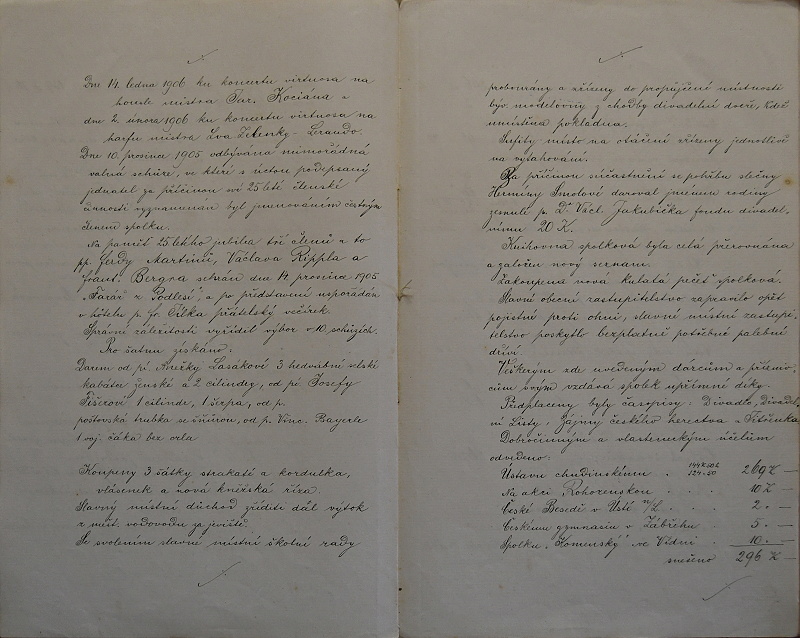 Dne 14. ledna 1906 ku koncertu virtuosa na
housle mistra Jar. Kociána a
dne 2. února 1906 ku koncertu virtuosa na
harfu mistra Lva Zelenky-Lerando.
Dne 10. prosince 1905 odbývána mimořádná
valná schůze, ve které s úctou podepsaný
jednatel za příčinou své 25 leté členské
činnosti vyznamenán byl jmenováním čestným
členem spolku.
Na paměť 25 letého jubilea tří členů a to
pp. Ferdy Martinů, Václava Rippla a
Frant. Bergra sehrán dne 14. prosince 1905
"Farář z Podlesí", a po představení uspořádán
v hotelu p. Fr. Čilka přátelský večírek.
Správní záležitosti vyřídil výbor v 10 schůzích.
Pro šatnu získáno:
Darem od pí. Anežky Lasákové 3 hedvábné selské
kabáty ženské a 2 cilindry, od pí. Josefy
Fišerové 1 cilindr, 1 šerpa, od p.
poštovská trubka se šňůrou, od p. Vinc. Bayerle
1 voj. čáka bez orla
Koupeny 3 šátky strakaté a kordulka,
vlásenek a nová kněžská říza.
Slavný místní důchod zříditi dal výtok
z měst. vodovodu za jeviště.
Se svolením slavné místní školní rady
probourány a zřízeny do propůjčené místnosti
býv. modelovny z chodby divadelní dveře, kde
umístěna pokladna.
Sufity místo na otáčení zřízeny jednotlivě
na vytahování.
Za příčinou súčastnění se pohřbu slečny
Hermíny Smolové daroval jménem rodiny
zesnulé p. Dr. Václ. Jakubička fondu divadel-
nímu 20 K.
Knihovna spolková byla celá přerovnána
a založen nový seznam.
Zakoupena nová kulatá pečeť spolková.
Slavné obecní zastupitelstvo zapravilo opět
pojistné proti ohni, slavné místní zastupi-
telstvo poskytlo bezplatně potřebné palební
dříví.
Veškerým zde uvedeným dárcům a příznivcům
svým vzdává spolek upřímné díky.
Předplaceny byly časopisy: Divadlo, Divadel-
ní Listy, Zájmy českého herectva a Tetčenka
Dobročinným a vlasteneckým účelům
odvedeno:
Ústavu chudinskému . 144 K 50 h 124.50 269 K —
Na akci Rohozenskou . . . 10 K —
České Besedě v Ústí n/L. . . . 2. —
Českému gymnasiu v Zábřehu . . 5. —
Spolku "Komenský" ve Vídni . . 10. —
sneseno 296 K —